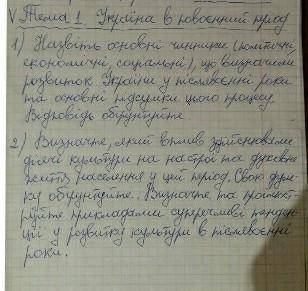 V Тема 1. Україна в повоєнний період
1) Назвіть основні чинники (політичні,
економічні, соціальні), що визначили
розвиток України у післявоєнні роки
та основні підсумки цього процесу.
Відповідь обґрунтуйте.
2) Визначте, який вплив здійснювали
діячі культури на настрої та духовне
життя населення у цей період. Свою дум-
ку обґрунтуйте. Визначте та проілюст-
руйте прикладами суперечливі тенден-
ції у розвитку культури в післявоєнні
роки.